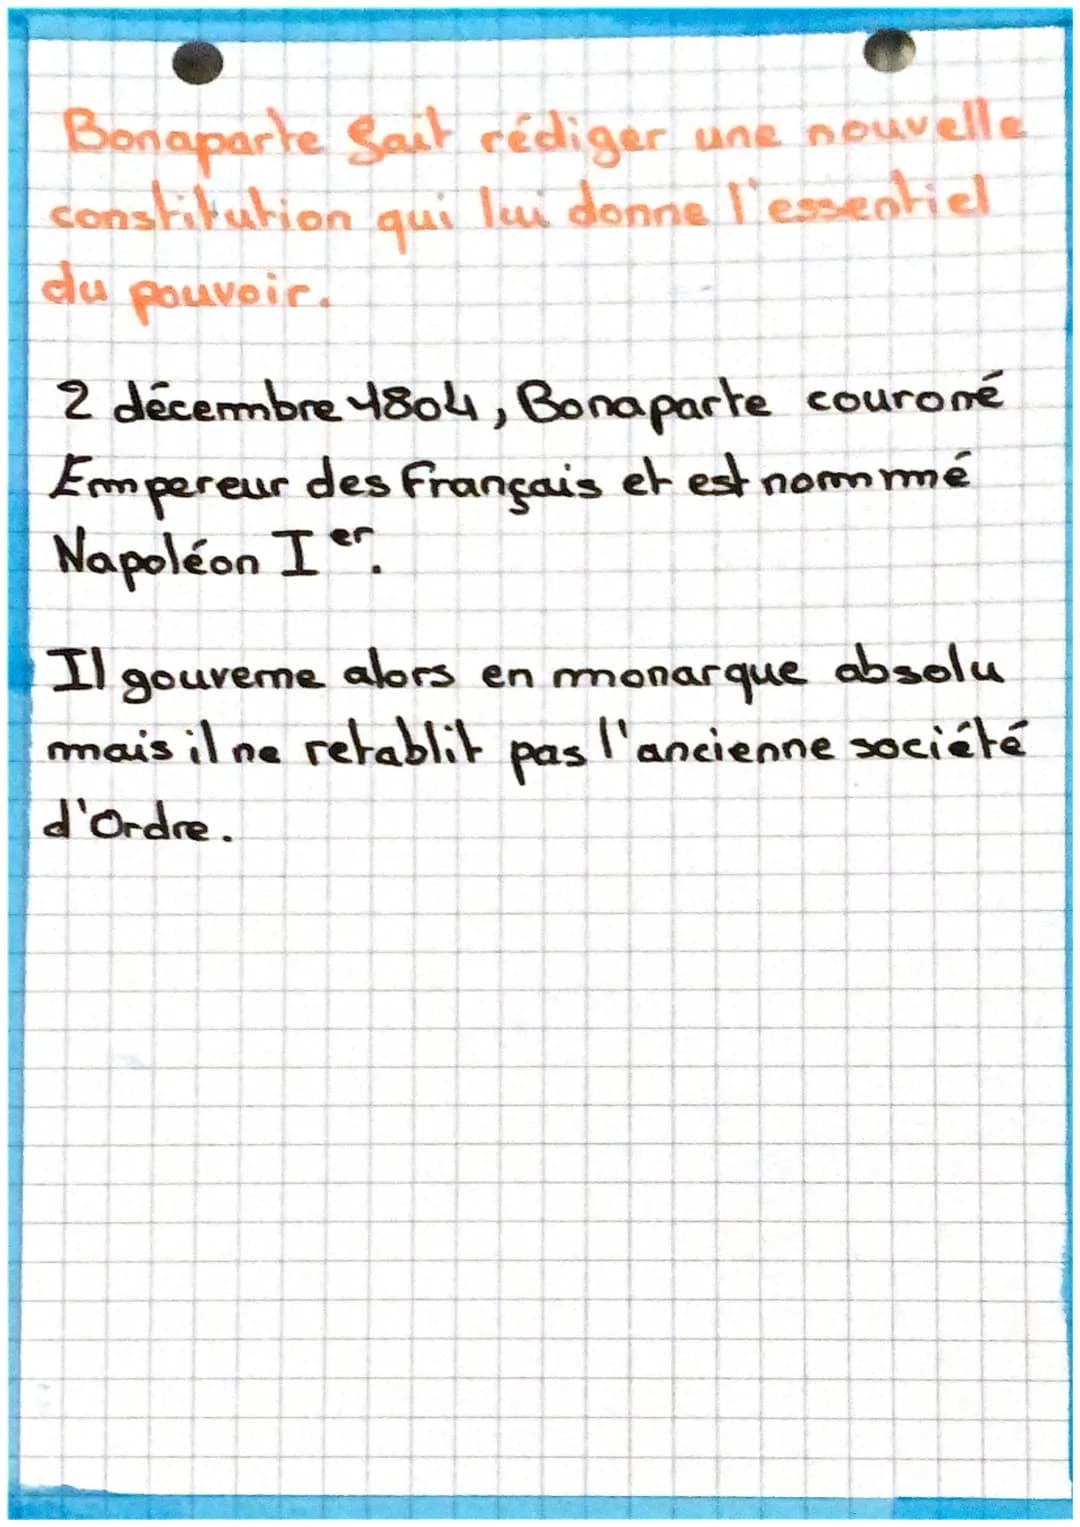 Bonaparte fait rédiger une nouvelle
constitution qui lui donne l'essentiel
du pouvoir.
2 décembre 1804, Bonaparte couroné
Empereur des Français et est nommé
Napoléon Iᵉʳ.
Il gouverne alors en monarque absolu
mais il ne retablit pas l'ancienne société
d'Ordre.